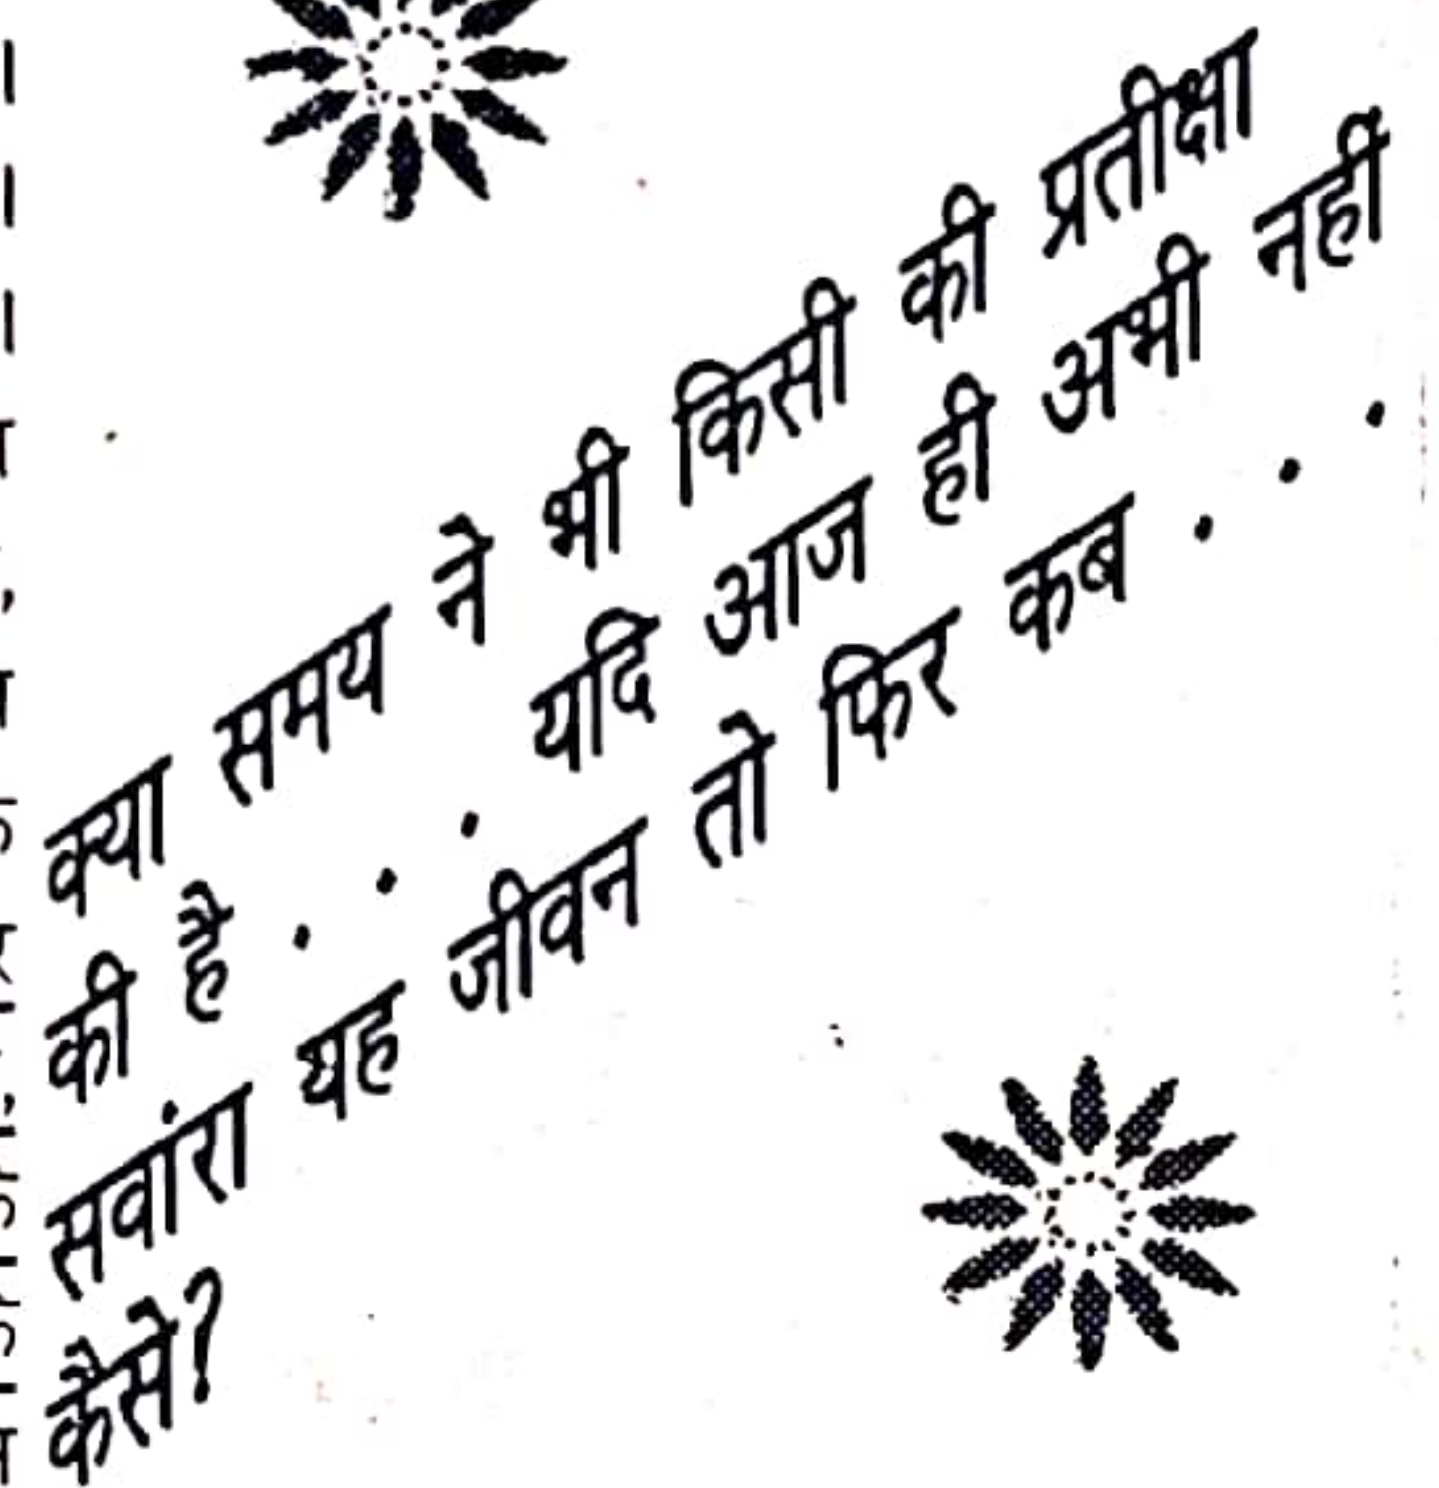 क्या समय ने भी किसी की प्रतीक्षा
की है . . . यदि आज ही अभी नहीं
सवांरा यह जीवन तो फिर कब . . .
कैसे?